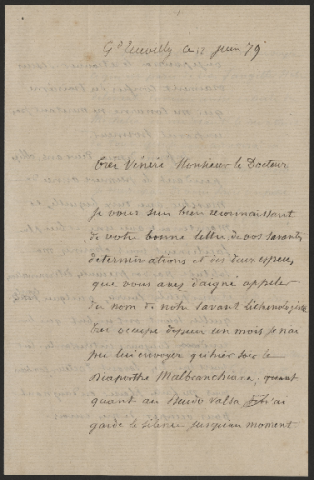 Gd Quevilly ce 12 Juin 79
Très Vénéré Monsieur le Docteur
Je vous suis bien reconnaissant
de votre bonne lettre, de vos savantes
déterminations et des deux espèces
que vous avez daigné appeler
du nom de notre savant Lichenologiste
Très occupé depuis un mois je n'ai
pu lui envoyer qu'hier soir le
Diaporthe Malbranchiana, quant
quant au Pseudo Valsa j'ai
gardé le silence jusqu'au moment